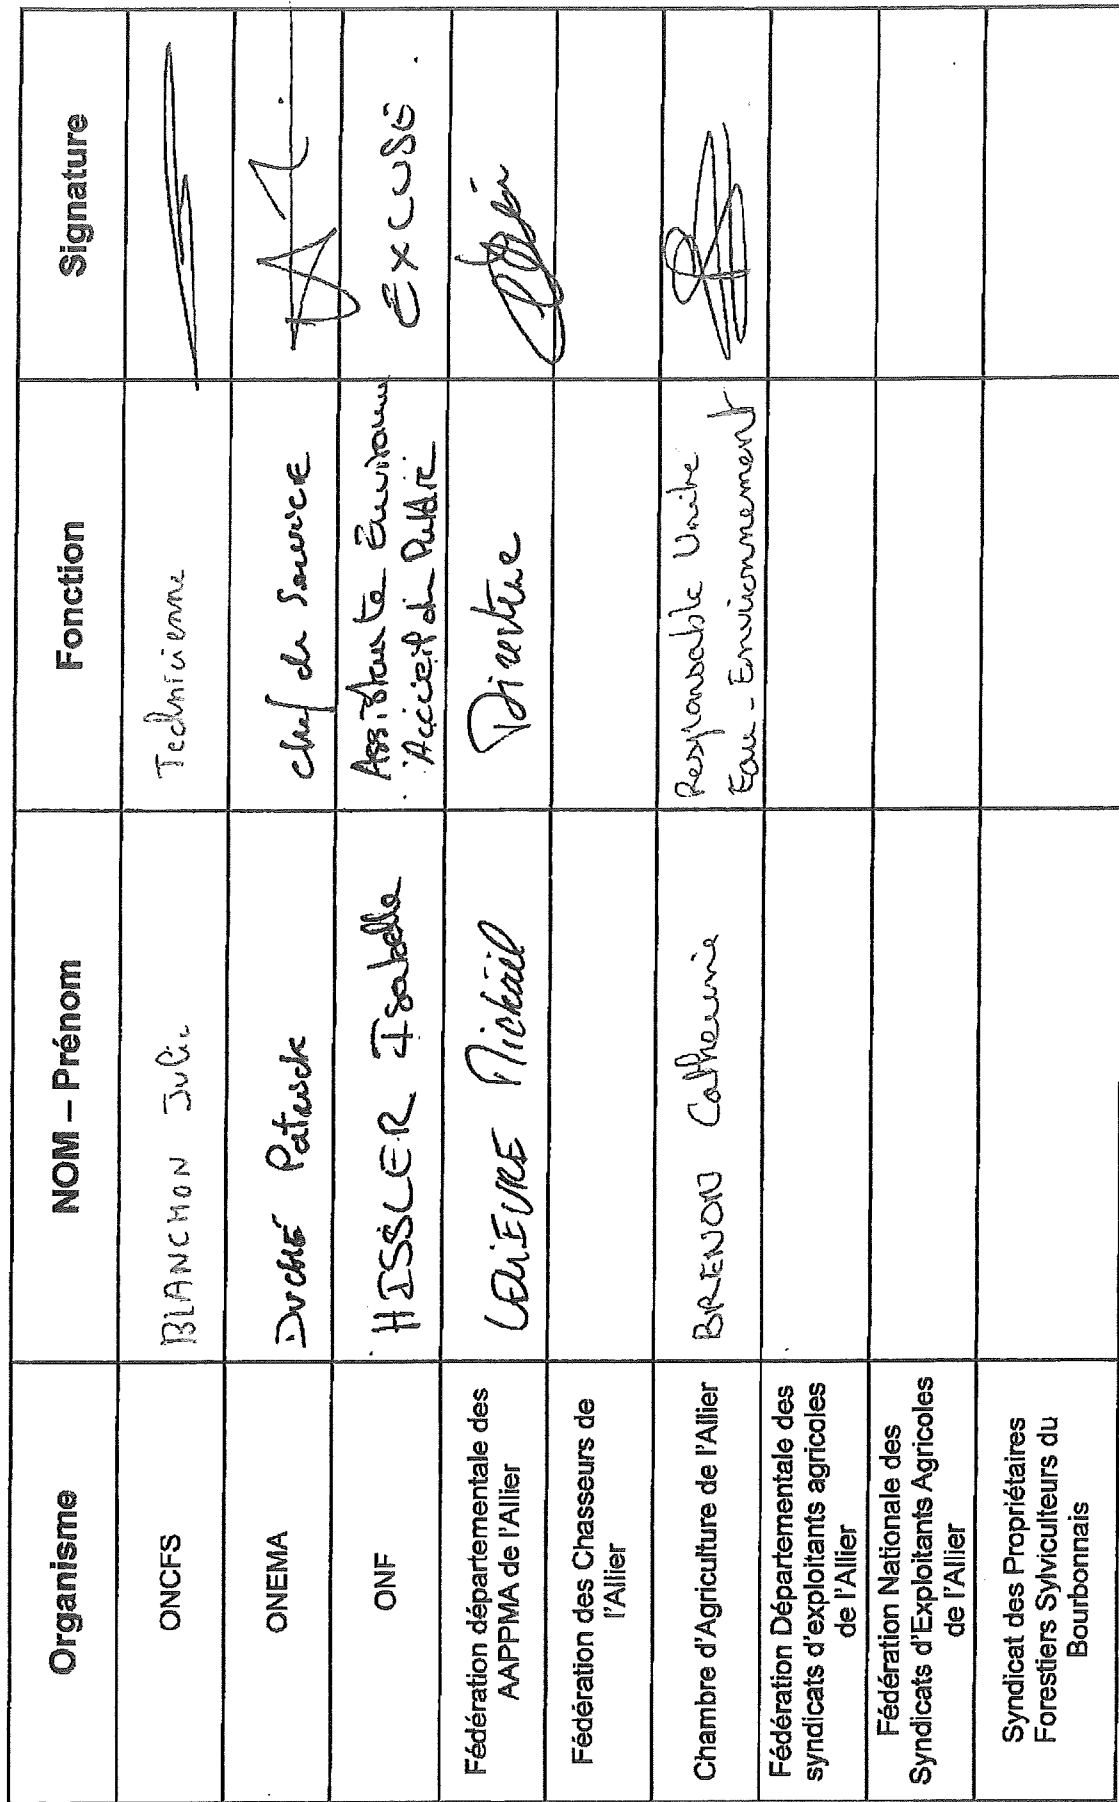 Organisme
NOM – Prénom
Fonction
Signature
ONCFS
BLANCHON Julie
Technicienne
ONEMA
DUCHÉ Patrick
chef de service
ONF
HISSLER Isabelle
Assistante Environn
Accueil du Public
EXCUSÉ.
Fédération départementale des
AAPPMA de l'Allier
LELIEVRE Mickaël
Fédération des Chasseurs de
l'Allier
Chambre d'Agriculture de l'Allier
BRENON Catherine
Responsable Unité
Eau - Environnement
Fédération Départementale des
syndicats d'exploitants agricoles
de l'Allier
Fédération Nationale des
Syndicats d'Exploitants Agricoles
de l'Allier
Syndicat des Propriétaires
Forestiers Sylviculteurs du
Bourbonnais